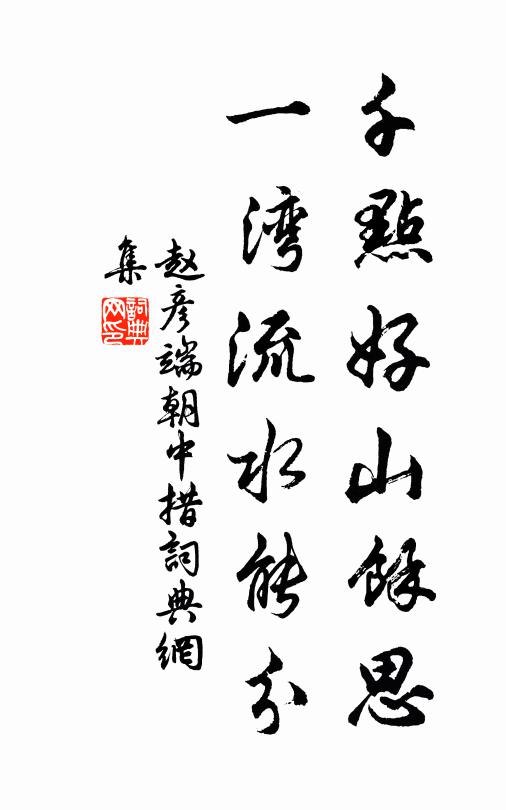 千點好山餘思
一湾流水能分
赵彦端朝中措詞典網
集
詞典
网印